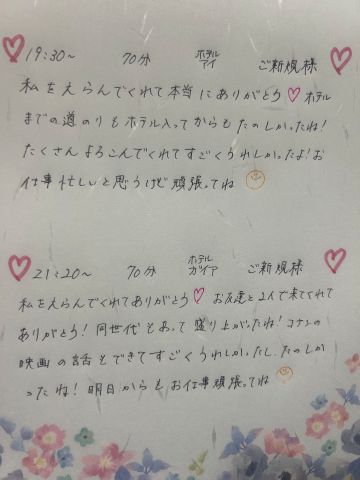 19:30~ 70分 ホテル アイ ご新規様
私をえらんでくれて本当にありがとう♡ホテル
までの道のりもホテル入ってからもたのしかったね!
たくさんよろこんでくれてすごくうれしかったよ!お
仕事忙しいと思うけど頑張ってね☺
21:20~ 70分 ホテル ガイア ご新規様
私をえらんでくれてありがとう♡お友達と2人で来てくれて
ありがとう!同世代もあって盛り上がったね!コナンの
映画の話もできてすごくうれしかったし、たのしか
ったね!明日からもお仕事頑張ってね☺